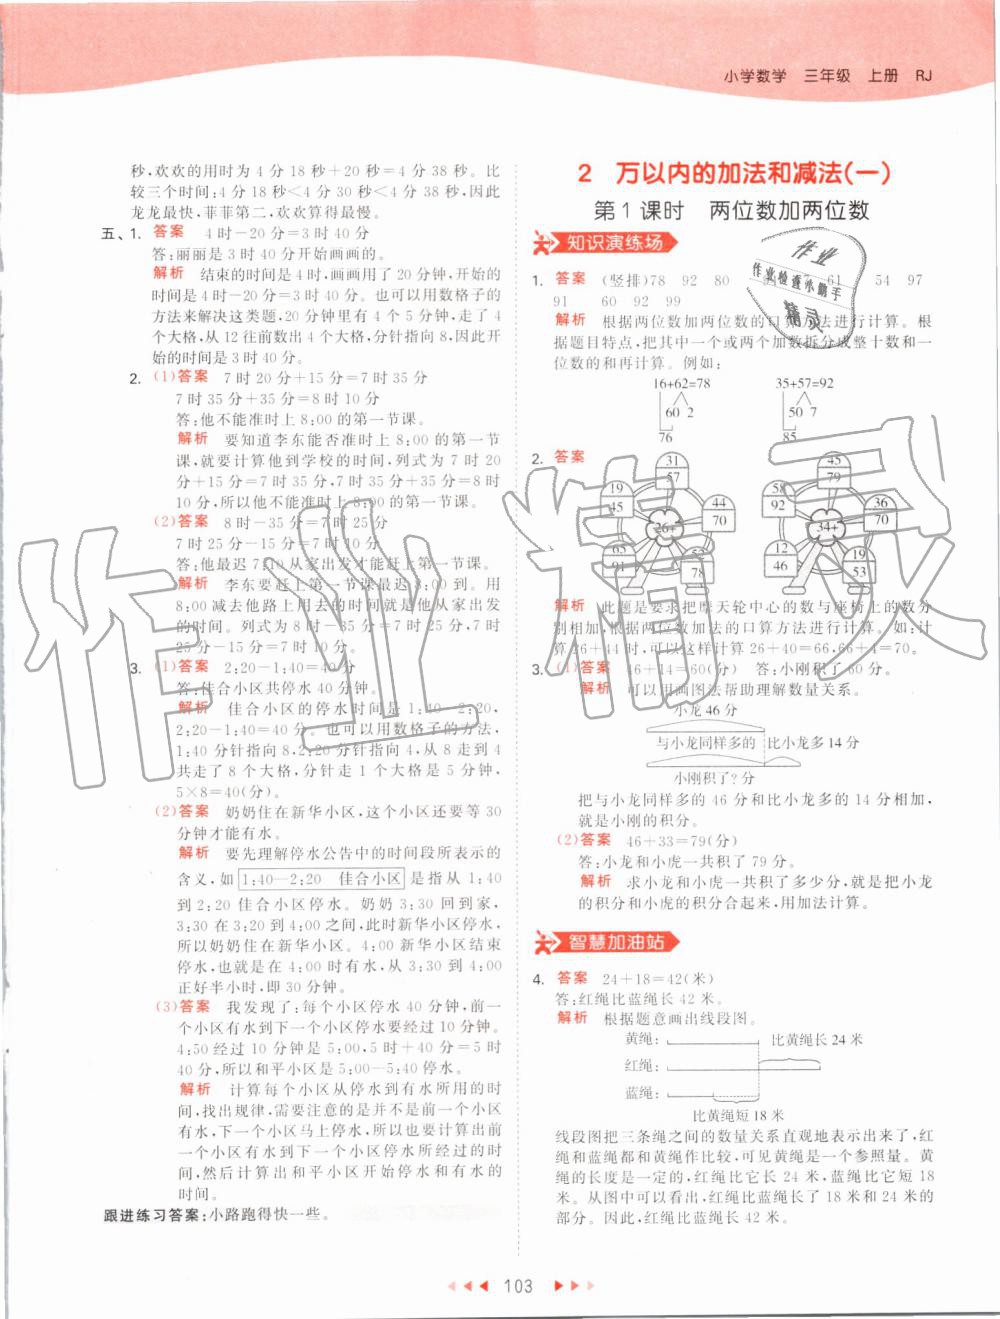 小学数学 三年级 上册 RJ
秒,欢欢的用时为 4 分 18 秒+20 秒=4 分 38 秒。比
较三个时间:4 分 18 秒<4 分 30 秒<4 分 38 秒,因此
龙龙最快,菲菲第二,欢欢算得最慢。
五、1. 答案 4 时-20 分=3 时 40 分
答:丽丽是 3 时 40 分开始画画的。
解析 结束的时间是 4 时,画画用了 20 分,开始的
时间是 4 时-20 分=3 时 40 分。也可以用数格子的
方法来解决这类题,20 分钟里有 4 个 5 分钟,走了 4
个大格,从 12 往前数出 4 个大格,分针指向 8,因此开
始的时间是 3 时 40 分。
2. (1)答案 7 时 20 分+15 分=7 时 35 分
7 时 35 分+35 分=8 时 10 分
答:他不能准时上 8:00 的第一节课。
解析 要知道李东能否准时上 8:00 的第一节
课,就要计算他到学校的时间,列式为 7 时 20
分+15 分=7 时 35 分,7 时 35 分+35 分=8 时
10 分,所以他不能准时上 8:00 的第一节课。
(2)答案 8 时-35 分=7 时 25 分
7 时 25 分-15 分=7 时 10 分
答:他最迟 7:10 从家出发才能赶上第一节课。
解析 李东要赶上第一节课最迟 8:00 到。用
8:00 减去他路上用去的时间就是他从家出发
的时间。列式为 8 时-35 分=7 时 25 分,7 时
25 分-15 分=7 时 10 分。
3. (1)答案 2:20-1:40=40 分
答:佳合小区共停水 40 分钟。
解析 佳合小区的停水时间是 1:40-2:20,
2:20-1:40=40 分。也可以用数格子的方法,
1:40 分针指向 8,2:20 分针指向 4,从 8 走到 4
共走了 8 个大格,分针走一个大格是 5 分钟,
5×8=40(分)。
(2)答案 奶奶住在新华小区,这个小区还要等 30
分钟才能有水。
解析 要先理解停水公告中的时间段所表示的
含义,如 1:40—2:20 佳合小区 是指从 1:40
到 2:20 佳合小区停水。奶奶 3:30 回到家,
3:30 在 3:20 到 4:00 之间,此时新华小区停水,
所以奶奶住在新华小区。4:00 新华小区结束
停水,也就是在 4:00 时有水,从 3:30 到 4:00
正好半小时,即 30 分钟。
(3)答案 我发现了:每个小区停水 40 分钟,前一
个小区有水到下一个小区停水要经过 10 分钟。
4:50 经过 10 分钟是 5:00,5 时+40 分=5 时
40 分,所以和平小区是 5:00—5:40 停水。
解析 计算每个小区从停水到有水所用的时
间,找出规律,需要注意的是并不是前一个小区
有水,下一个小区马上停水,所以也要计算出前
一个小区有水到下一个小区停水所经过的时
间,然后计算出和平小区开始停水和有水的
时间。
跟进练习答案:小路跑得快一些。
2 万以内的加法和减法(一)
第 1 课时 两位数加两位数
知识演练场
1. 答案 (竖排)78 92 80 61 54 97
91 60 92 99
解析 根据两位数加两位数的口算方法进行计算。根
据题目特点,把其中一个或两个加数拆分成整十数和一
位数的和再计算。例如:
16+62=78 35+57=92
60 2 50 7
76 85
2. 答案
31 57
19 45
44 70
65 91
52 78
26+
45 79
58 92
36 70
12 46
19 53
34+
解析 此题是要求把摩天轮中心的数与座椅上的数分
别相加,根据两位数加法的口算方法进行计算。如:计
算 26+44 时,可以这样计算 26+40=66,66+4=70。
3. (1)答案 46+14=60(分) 答:小刚积了 60 分。
解析 可以用画图法帮助理解数量关系。
小龙 46 分
与小龙同样多的 比小龙多 14 分
小刚积了?分
把与小龙同样多的 46 分和比小龙多的 14 分相加,
就是小刚的积分。
(2)答案 46+33=79(分)
答:小龙和小虎一共积了 79 分。
解析 求小龙和小虎一共积了多少分,就是把小龙
的积分和小虎的积分合起来,用加法计算。
智慧加油站
4. 答案 24+18=42(米)
答:红绳比蓝绳长 42 米。
解析 根据题意画出线段图。
黄绳: 比黄绳长 24 米
红绳:
蓝绳:
比黄绳短 18 米
线段图把三条绳之间的数量关系直观地表示出来了,红
绳和蓝绳都和黄绳作比较,可见黄绳是一个参照量。黄
绳的长度是一定的,红绳比它长 24 米,蓝绳比它短 18
米。从图中可以看出,红绳比蓝绳长了 18 米和 24 米的
部分。因此,红绳比蓝绳长 42 米。
103
作业
作业检查小助手
精灵
作业精灵